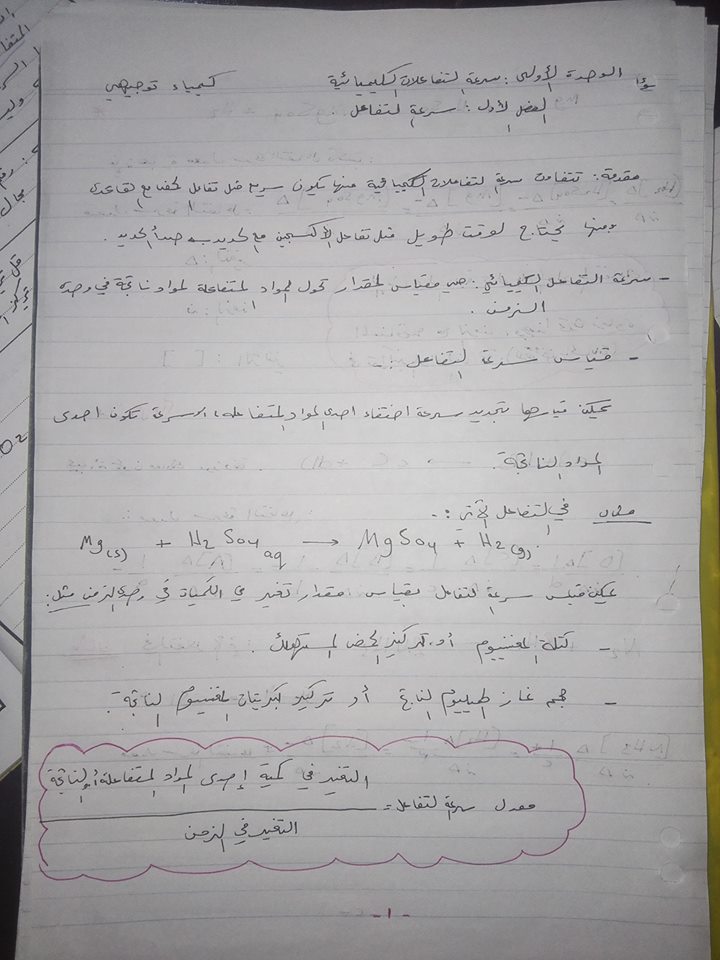 الوحدة الأولى: سرعة التفاعلات الكيميائية كيمياء توجيهي
الفصل الأول: سرعة التفاعل
مقدمة: تتفاوت سرعة التفاعلات الكيميائية منها تكون سريعة مثل تفاعل الحمض مع القاعدة
ومنها يحتاج لوقت طويل مثل تفاعل الأكسجين مع الحديد صدأ الحديد.
- سرعة التفاعل الكيميائي: هي مقياس لمقدار تحول المواد المتفاعلة لمواد ناتجة في وحدة
الزمن.
- قياس سرعة التفاعل:
يمكن قياسها بتحديد سرعة اختفاء احدى المواد المتفاعلة، او سرعة تكون احدى
المواد الناتجة.
مثال في التفاعل الآتي:-
Mg(s) + H2So4 aq → MgSo4 + H2(g).
يمكن قياس سرعة التفاعل بقياس مقدار تغير في الكميات في وحدة الزمن مثل:
- كتلة المغنيسيوم أو تركيز الحمض المستهلك.
- حجم غاز الهيليوم الناتج أو تركيز كبريتات المغنيسيوم الناتجة.
التغير في كمية إحدى المواد المتفاعلة أو الناتجة
معدل سرعة التفاعل =
التغير في الزمن
-١-